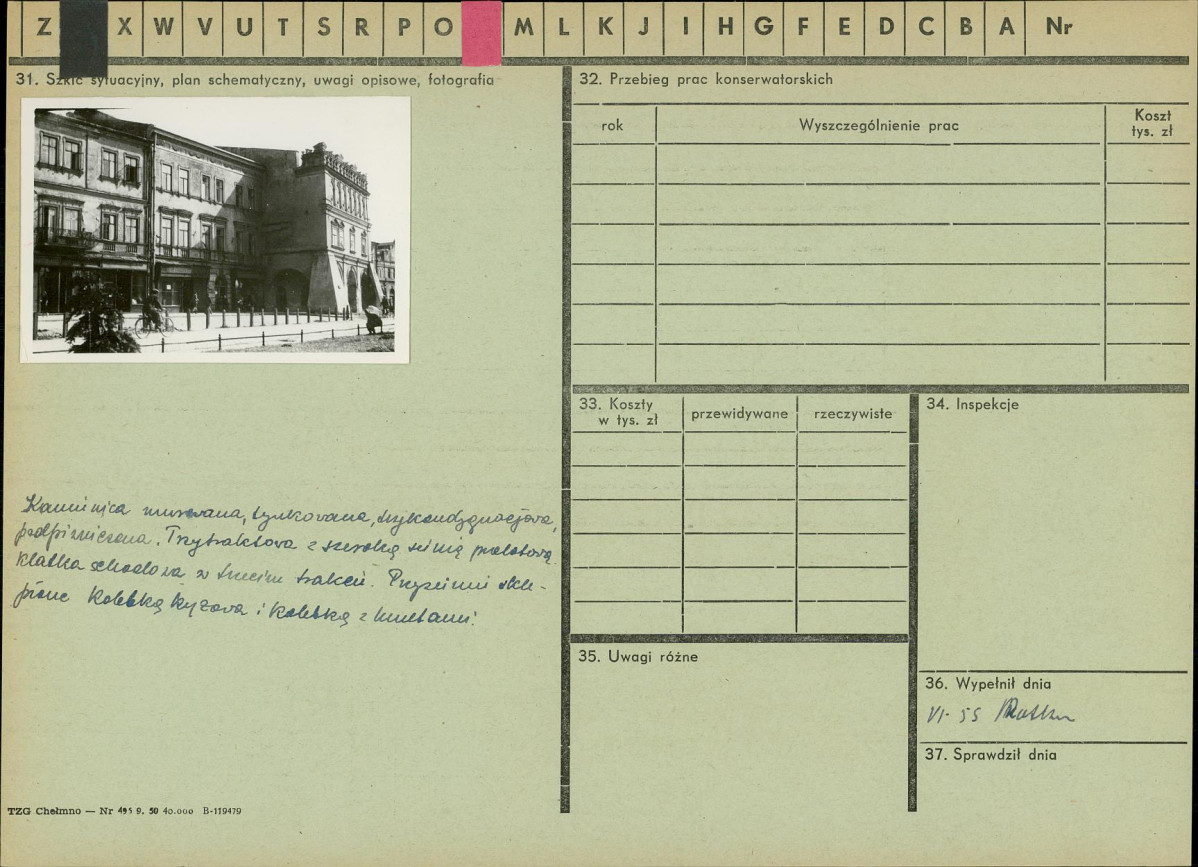 Z X W V U T S R P O M L K J I H G F E D C B A Nr
31. Szkic sytuacyjny, plan schematyczny, uwagi opisowe, fotografia
Kamienica murowana, tynkowana, trzykondygnacjowa,
podpiwniczona. Trzytraktowa z szeroką sienią przelotową
klatka schodowa w trzecim trakcie. Przyziemie skle-
pione kolebką krzyżową i kolebką z lunetami.
TZG Chełmno — Nr 495 9. 50 40.000 B-119479
32. Przebieg prac konserwatorskich
rok Wyszczególnienie prac Koszt
tys. zł
33. Koszty przewidywane rzeczywiste
w tys. zł
34. Inspekcje
35. Uwagi różne
36. Wypełnił dnia
VI-55
37. Sprawdził dnia